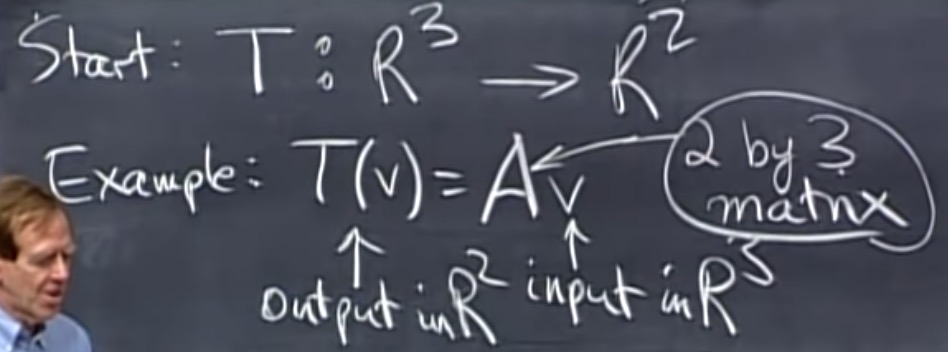 Start: T : R³ → R²
Example: T(v) = Av
2 by 3
matrix
output in R² input in R³